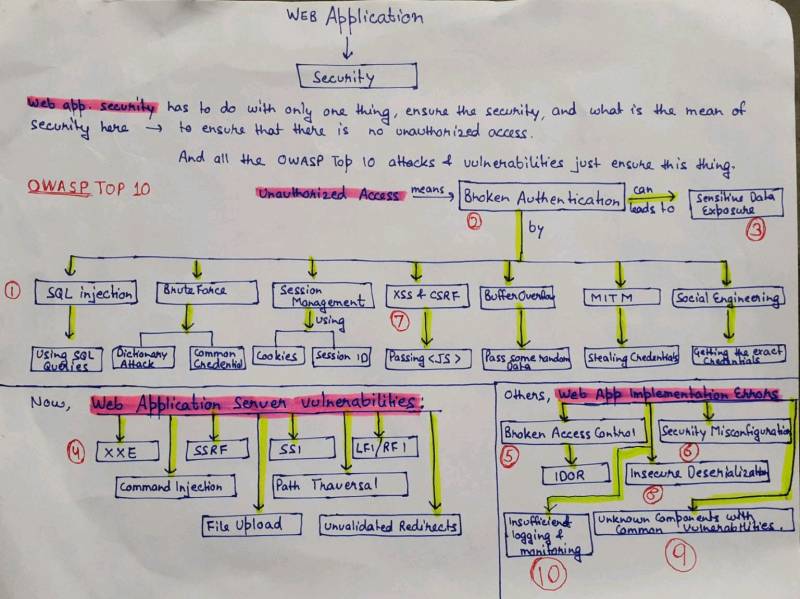 WEB Application
Security
Web app. security has to do with only one thing, ensure the security, and what is the mean of
security here → to ensure that there is no unauthorized access.
And all the OWASP Top 10 attacks & vulnerabilities just ensure this thing.
OWASP TOP 10
Unauthorized Access means → Broken Authentication can leads to Sensitive Data Exposure
② ③
by
① SQL injection
Brute Force
Session Management
XSS & CSRF
⑦
Buffer Overflow
MITM
Social Engineering
using
Using SQL Queries
Dictionary Attack
Common Credential
Cookies
Session ID
Passing <JS>
Pass some random Data
Stealing Credentials
Getting the exact Credentials
Now, Web Application Server Vulnerabilities:
④ XXE
SSRF
SSI
LFI/RFI
Command Injection
Path Traversal
File Upload
Unvalidated Redirects
Others, Web App Implementation Errors
Broken Access Control
⑤
Security Misconfiguration
⑥
IDOR
Insecure Deserialization
⑧
Insufficient logging & monitoring
⑩
Unknown Components with Common Vulnerabilities.
⑨